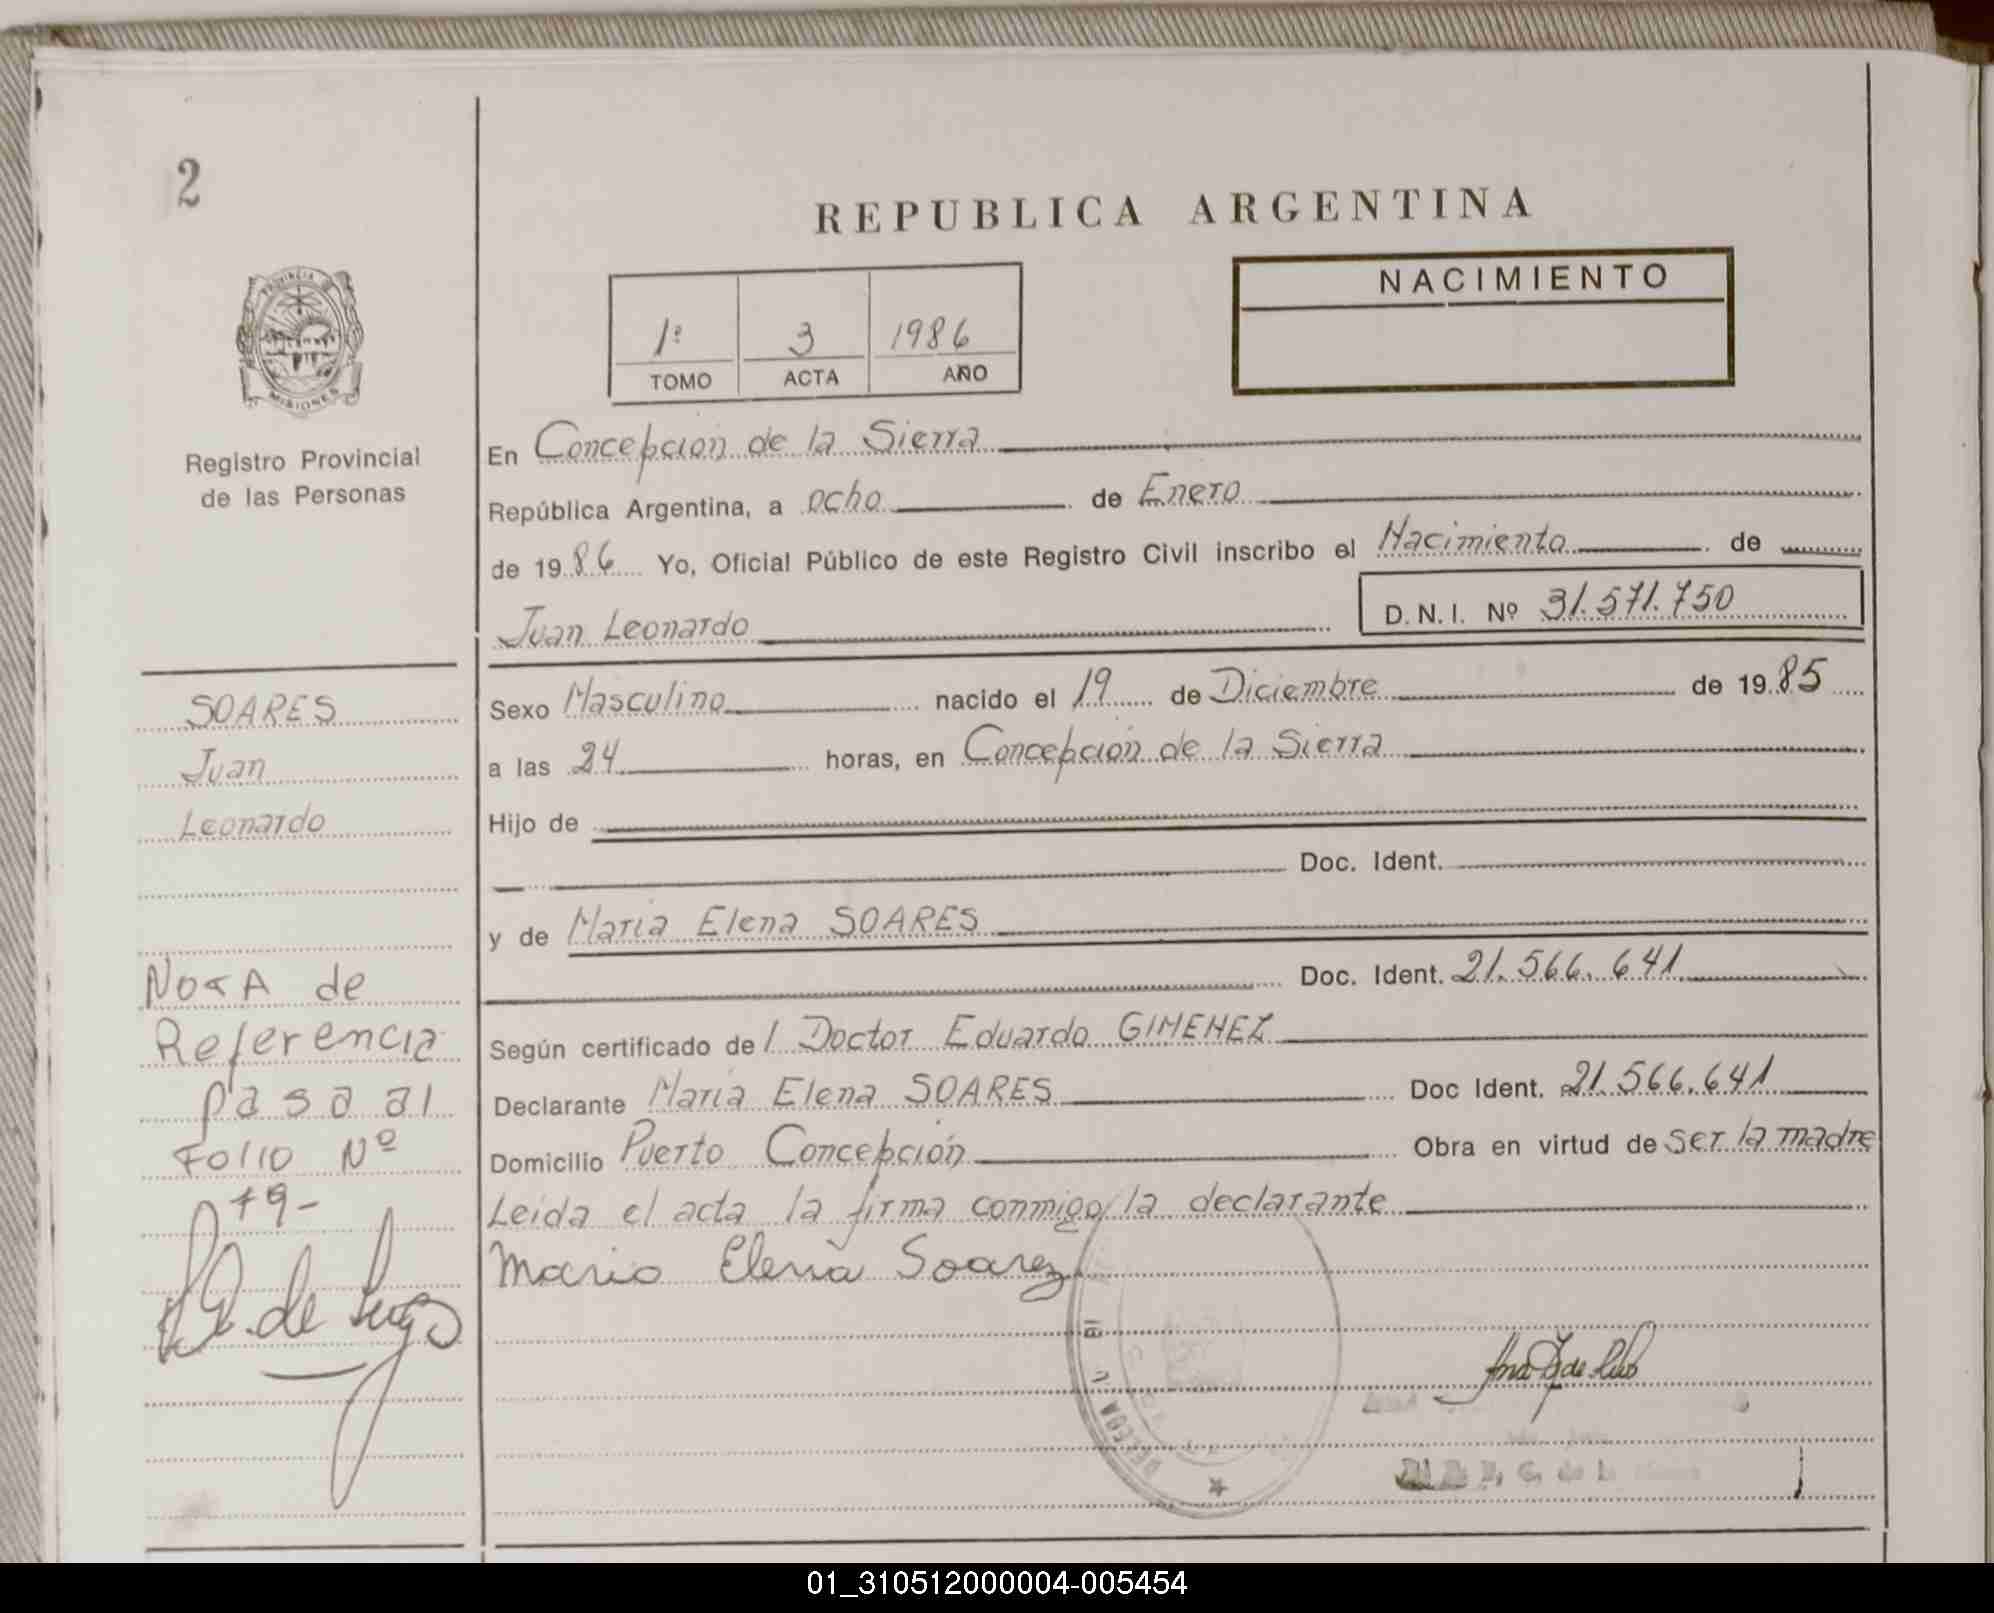 2
REPUBLICA ARGENTINA
PROVINCIA DE
MISIONES
Registro Provincial
de las Personas
1º 3 1986
TOMO ACTA AÑO
NACIMIENTO
En Concepción de la Sierra
República Argentina, a ocho de Enero
de 1986 Yo, Oficial Público de este Registro Civil inscribo el Nacimiento de
Juan Leonardo
D.N.I. Nº 31.571.750
SOARES
Juan
Leonardo
Sexo Masculino nacido el 19 de Diciembre de 1985
a las 24 horas, en Concepción de la Sierra
Hijo de
Doc. Ident.
y de Maria Elena SOARES
Doc. Ident. 21.566.641
Según certificado del Doctor Eduardo GIMENEZ
Declarante Maria Elena SOARES Doc Ident. 21.566.641
Domicilio Puerto Concepción Obra en virtud de ser la madre
Leida el acta la firma conmigo la declarante
Maria Elena Soarez
NOTA de
Referencia
pasa al
Folio Nº
79-
01_310512000004-005454